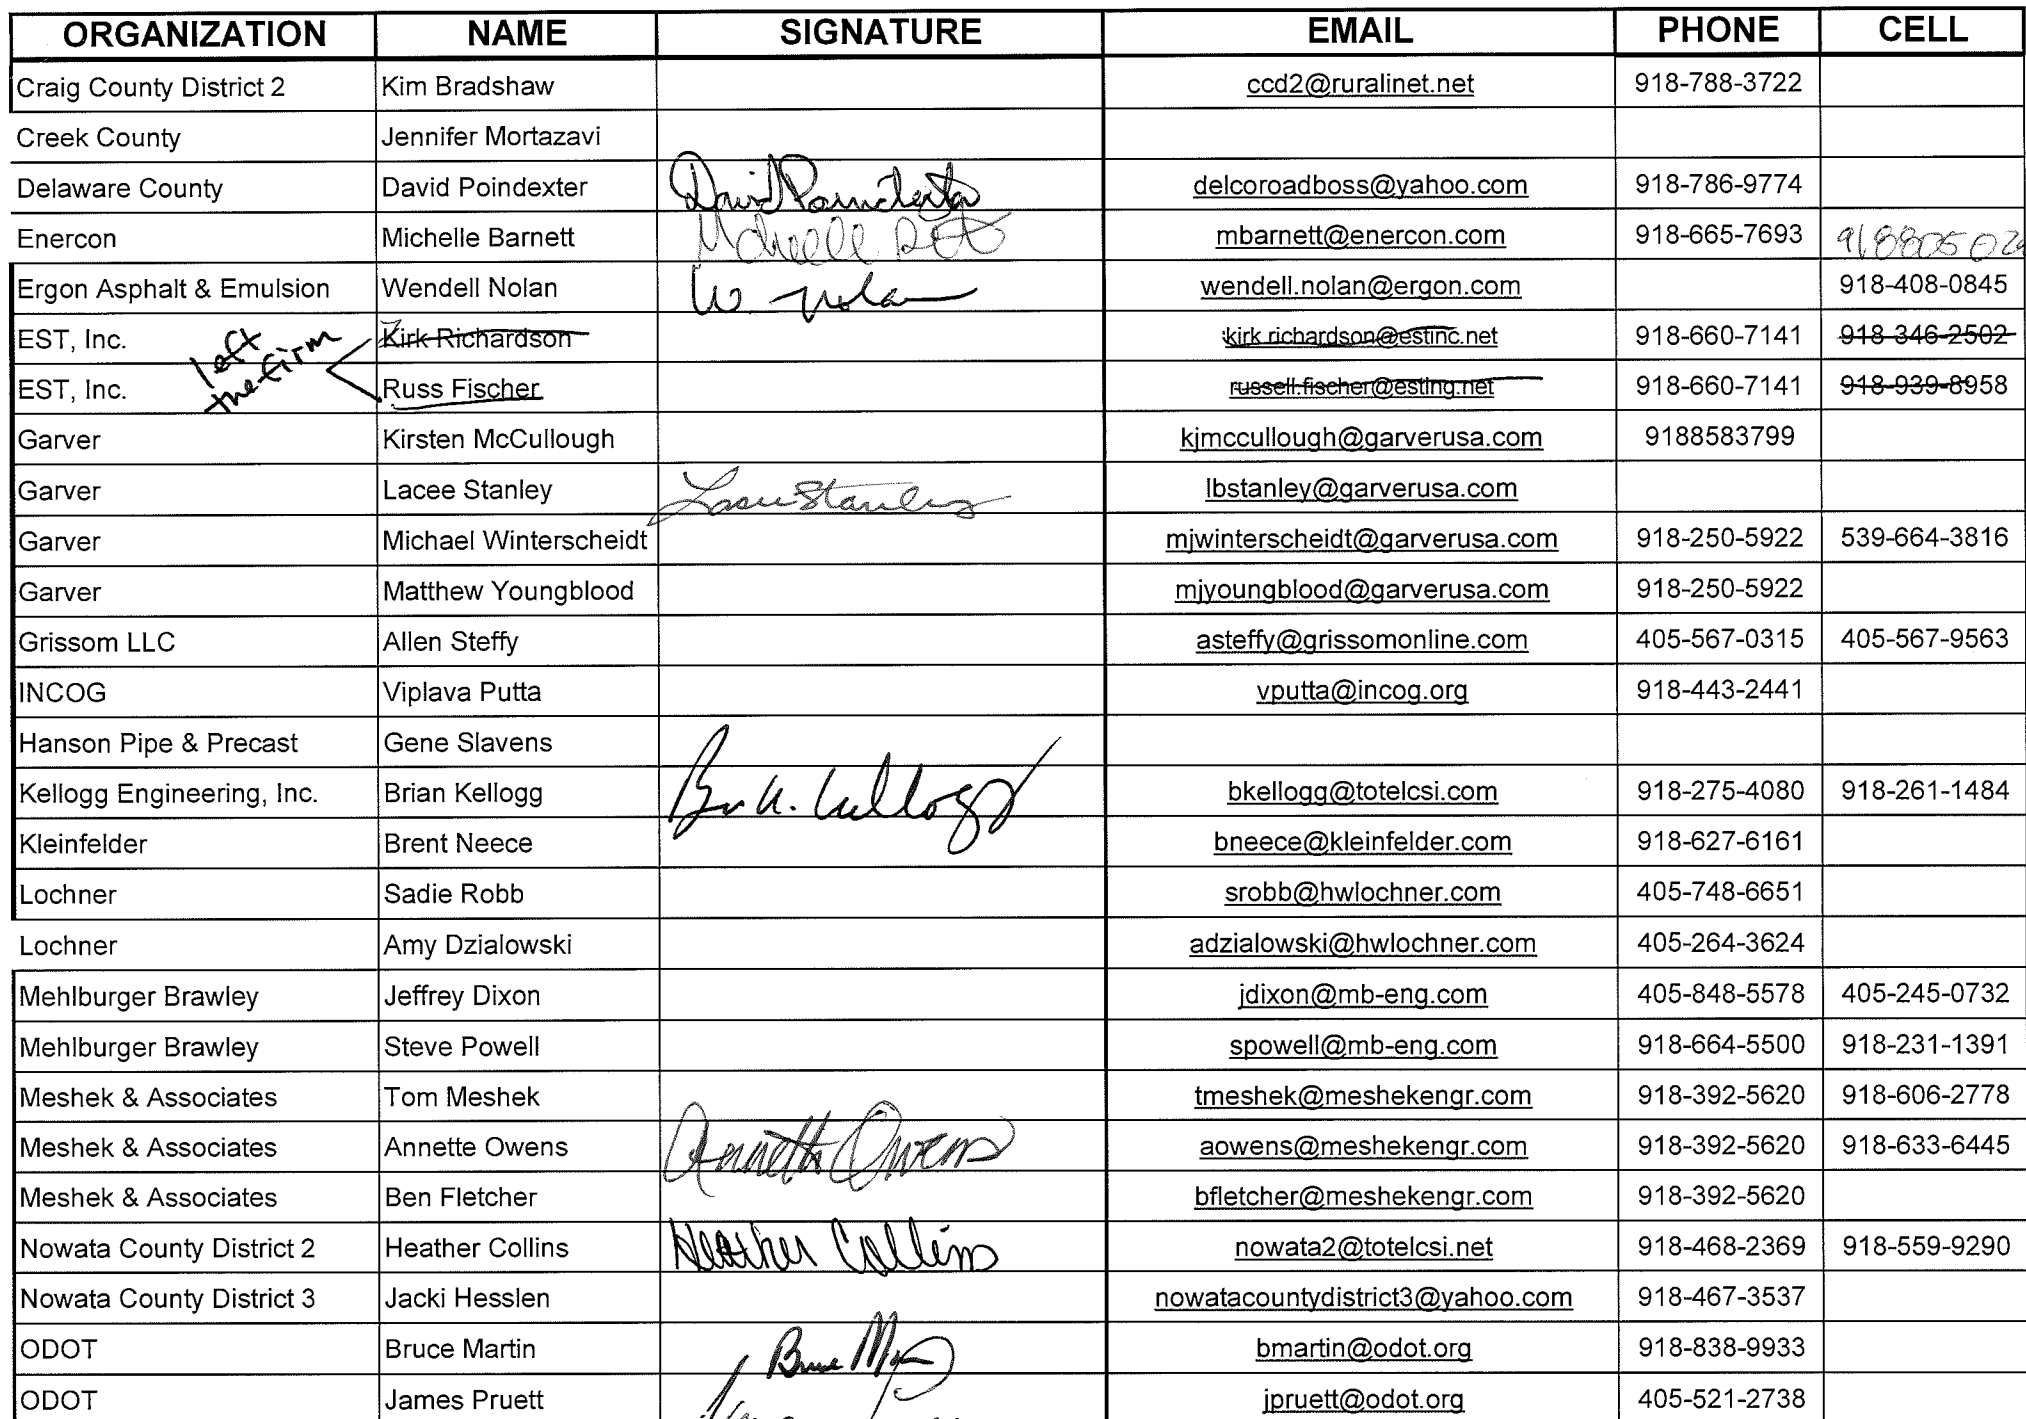 ORGANIZATION NAME SIGNATURE EMAIL PHONE CELL
Craig County District 2 Kim Bradshaw ccd2@ruralinet.net 918-788-3722
Creek County Jennifer Mortazavi
Delaware County David Poindexter David Poindexter delcoroadboss@yahoo.com 918-786-9774
Enercon Michelle Barnett Michelle mbarnett@enercon.com 918-665-7693 91880502
Ergon Asphalt & Emulsion Wendell Nolan W. Nolan wendell.nolan@ergon.com 918-408-0845
EST, Inc. left Kirk Richardson kirk.richardson@estinc.net 918-660-7141 918-346-2502
EST, Inc. the firm Russ Fischer russell.fischer@estinc.net 918-660-7141 918-939-8958
Garver Kirsten McCullough kjmccullough@garverusa.com 9188583799
Garver Lacee Stanley Lacee Stanley lbstanley@garverusa.com
Garver Michael Winterscheidt mjwinterscheidt@garverusa.com 918-250-5922 539-664-3816
Garver Matthew Youngblood mjyoungblood@garverusa.com 918-250-5922
Grissom LLC Allen Steffy asteffy@grissomonline.com 405-567-0315 405-567-9563
INCOG Viplava Putta vputta@incog.org 918-443-2441
Hanson Pipe & Precast Gene Slavens
Kellogg Engineering, Inc. Brian Kellogg Kellogg bkellogg@totelcsi.com 918-275-4080 918-261-1484
Kleinfelder Brent Neece bneece@kleinfelder.com 918-627-6161
Lochner Sadie Robb srobb@hwlochner.com 405-748-6651
Lochner Amy Dzialowski adzialowski@hwlochner.com 405-264-3624
Mehlburger Brawley Jeffrey Dixon jdixon@mb-eng.com 405-848-5578 405-245-0732
Mehlburger Brawley Steve Powell spowell@mb-eng.com 918-664-5500 918-231-1391
Meshek & Associates Tom Meshek tmeshek@meshekengr.com 918-392-5620 918-606-2778
Meshek & Associates Annette Owens Annette Owens aowens@meshekengr.com 918-392-5620 918-633-6445
Meshek & Associates Ben Fletcher bfletcher@meshekengr.com 918-392-5620
Nowata County District 2 Heather Collins Heather Collins nowata2@totelcsi.net 918-468-2369 918-559-9290
Nowata County District 3 Jacki Hesslen nowatacountydistrict3@yahoo.com 918-467-3537
ODOT Bruce Martin Bruce Martin bmartin@odot.org 918-838-9933
ODOT James Pruett jpruett@odot.org 405-521-2738